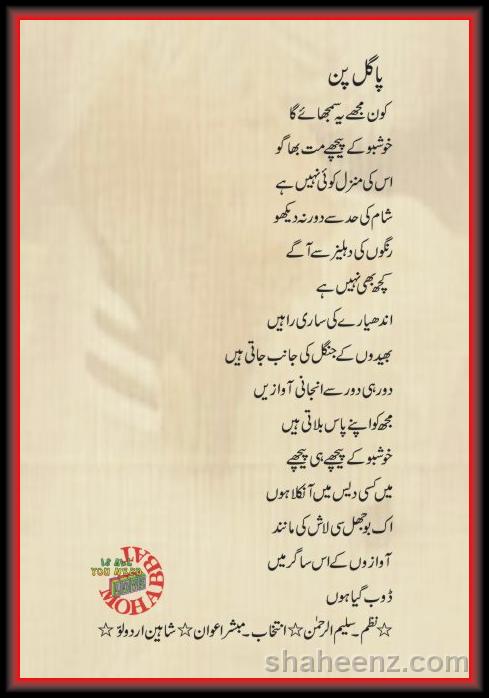 پاگل پن
کون مجھے یہ سمجھائے گا
خوشبو کے پیچھے مت بھاگو
اس کی منزل کوئی نہیں ہے
شام کی حد سے دور نہ دیکھو
رنگوں کی دہلیز سے آگے
کچھ بھی نہیں ہے
اندھیارے کی ساری راہیں
بھیدوں کے جنگل کی جانب جاتی ہیں
دور ہی دور سے انجانی آوازیں
مجھ کو اپنے پاس بلاتی ہیں
خوشبو کے پیچھے ہی پیچھے
میں کسی دیس میں آ نکلا ہوں
اک بوجھل سی لاش کی مانند
آوازوں کے اس ساگر میں
ڈوب گیا ہوں
☆ نظم۔ سلیم الرحمٰن ☆ انتخاب۔ مبشر اعوان ☆ شاہین اردو لوّ ☆
IS ALL
YOU NEED
MOHABBAT
shaheenz.com